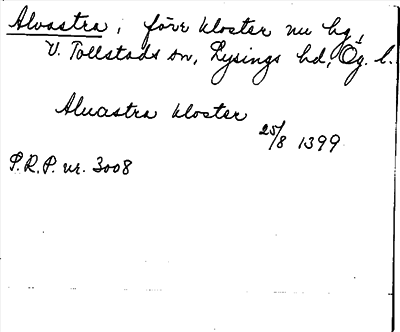 Alvastra, förr kloster nu bg,
V. Tollstads sn, Lysings hd, Ög. l.
Alvastra kloster
25/8 1399
S.R.P. nr. 3008